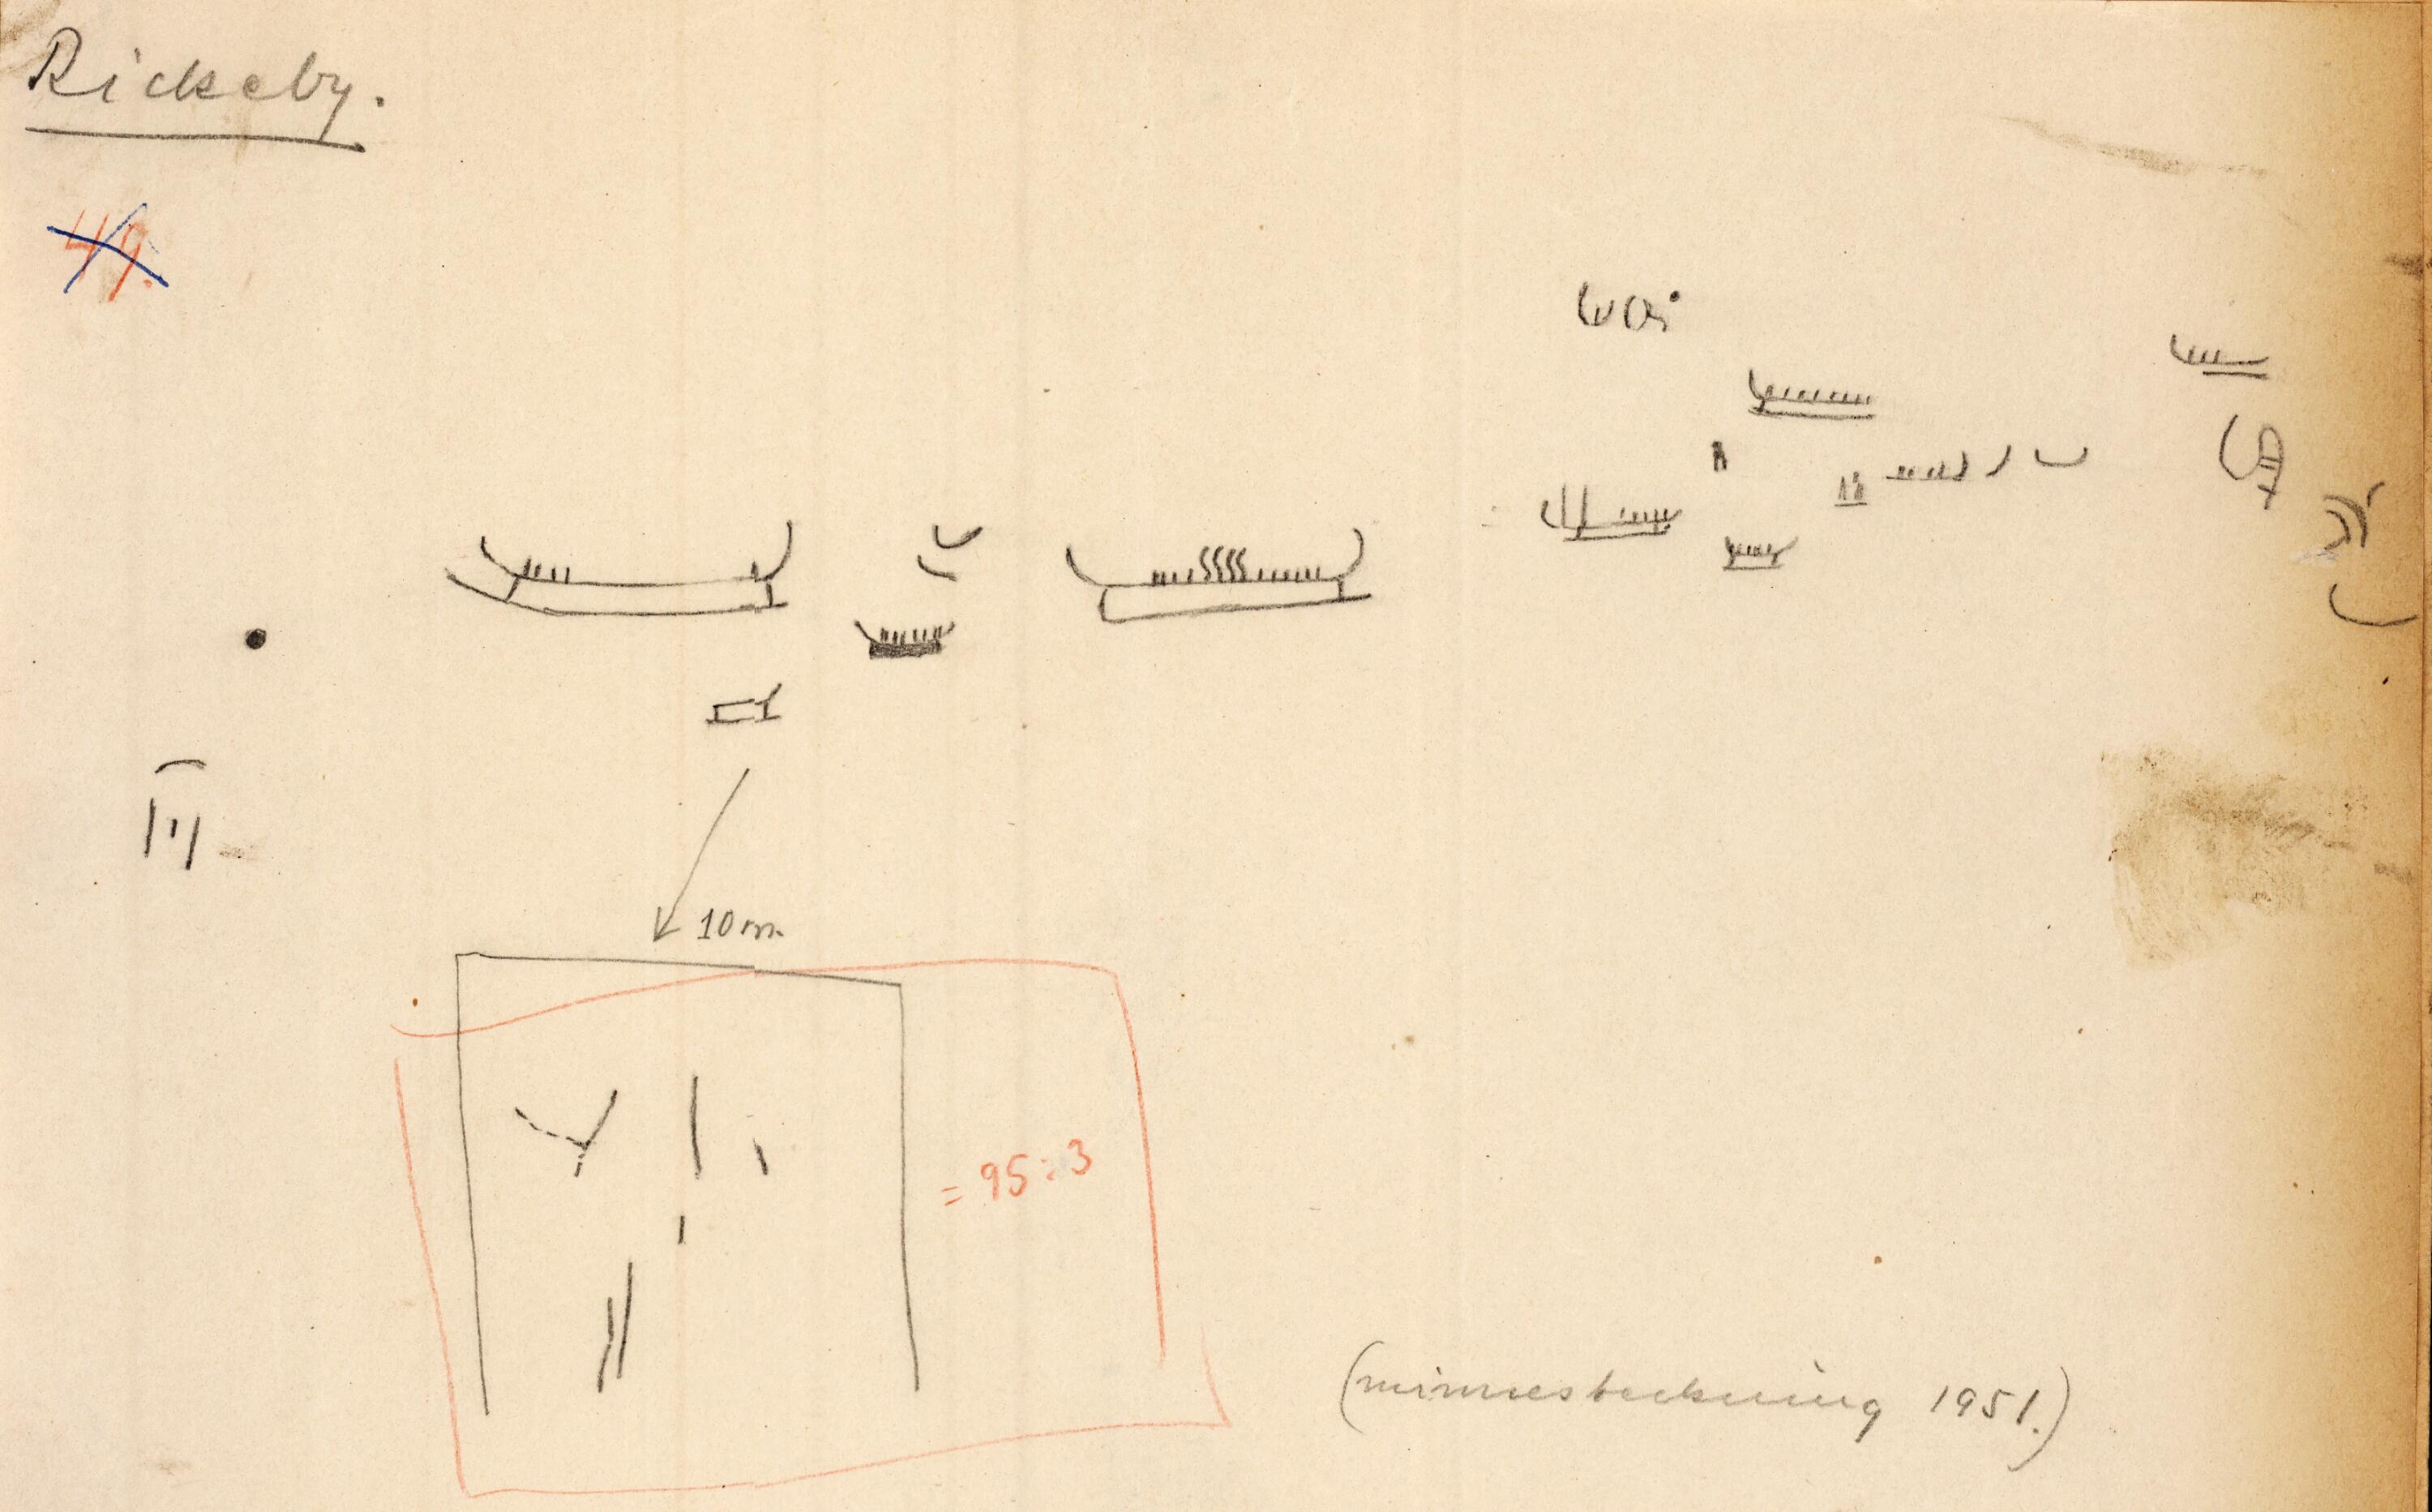 Rickeby.
49.
10 m.
= 95:3
(minnesteckning 1951.)